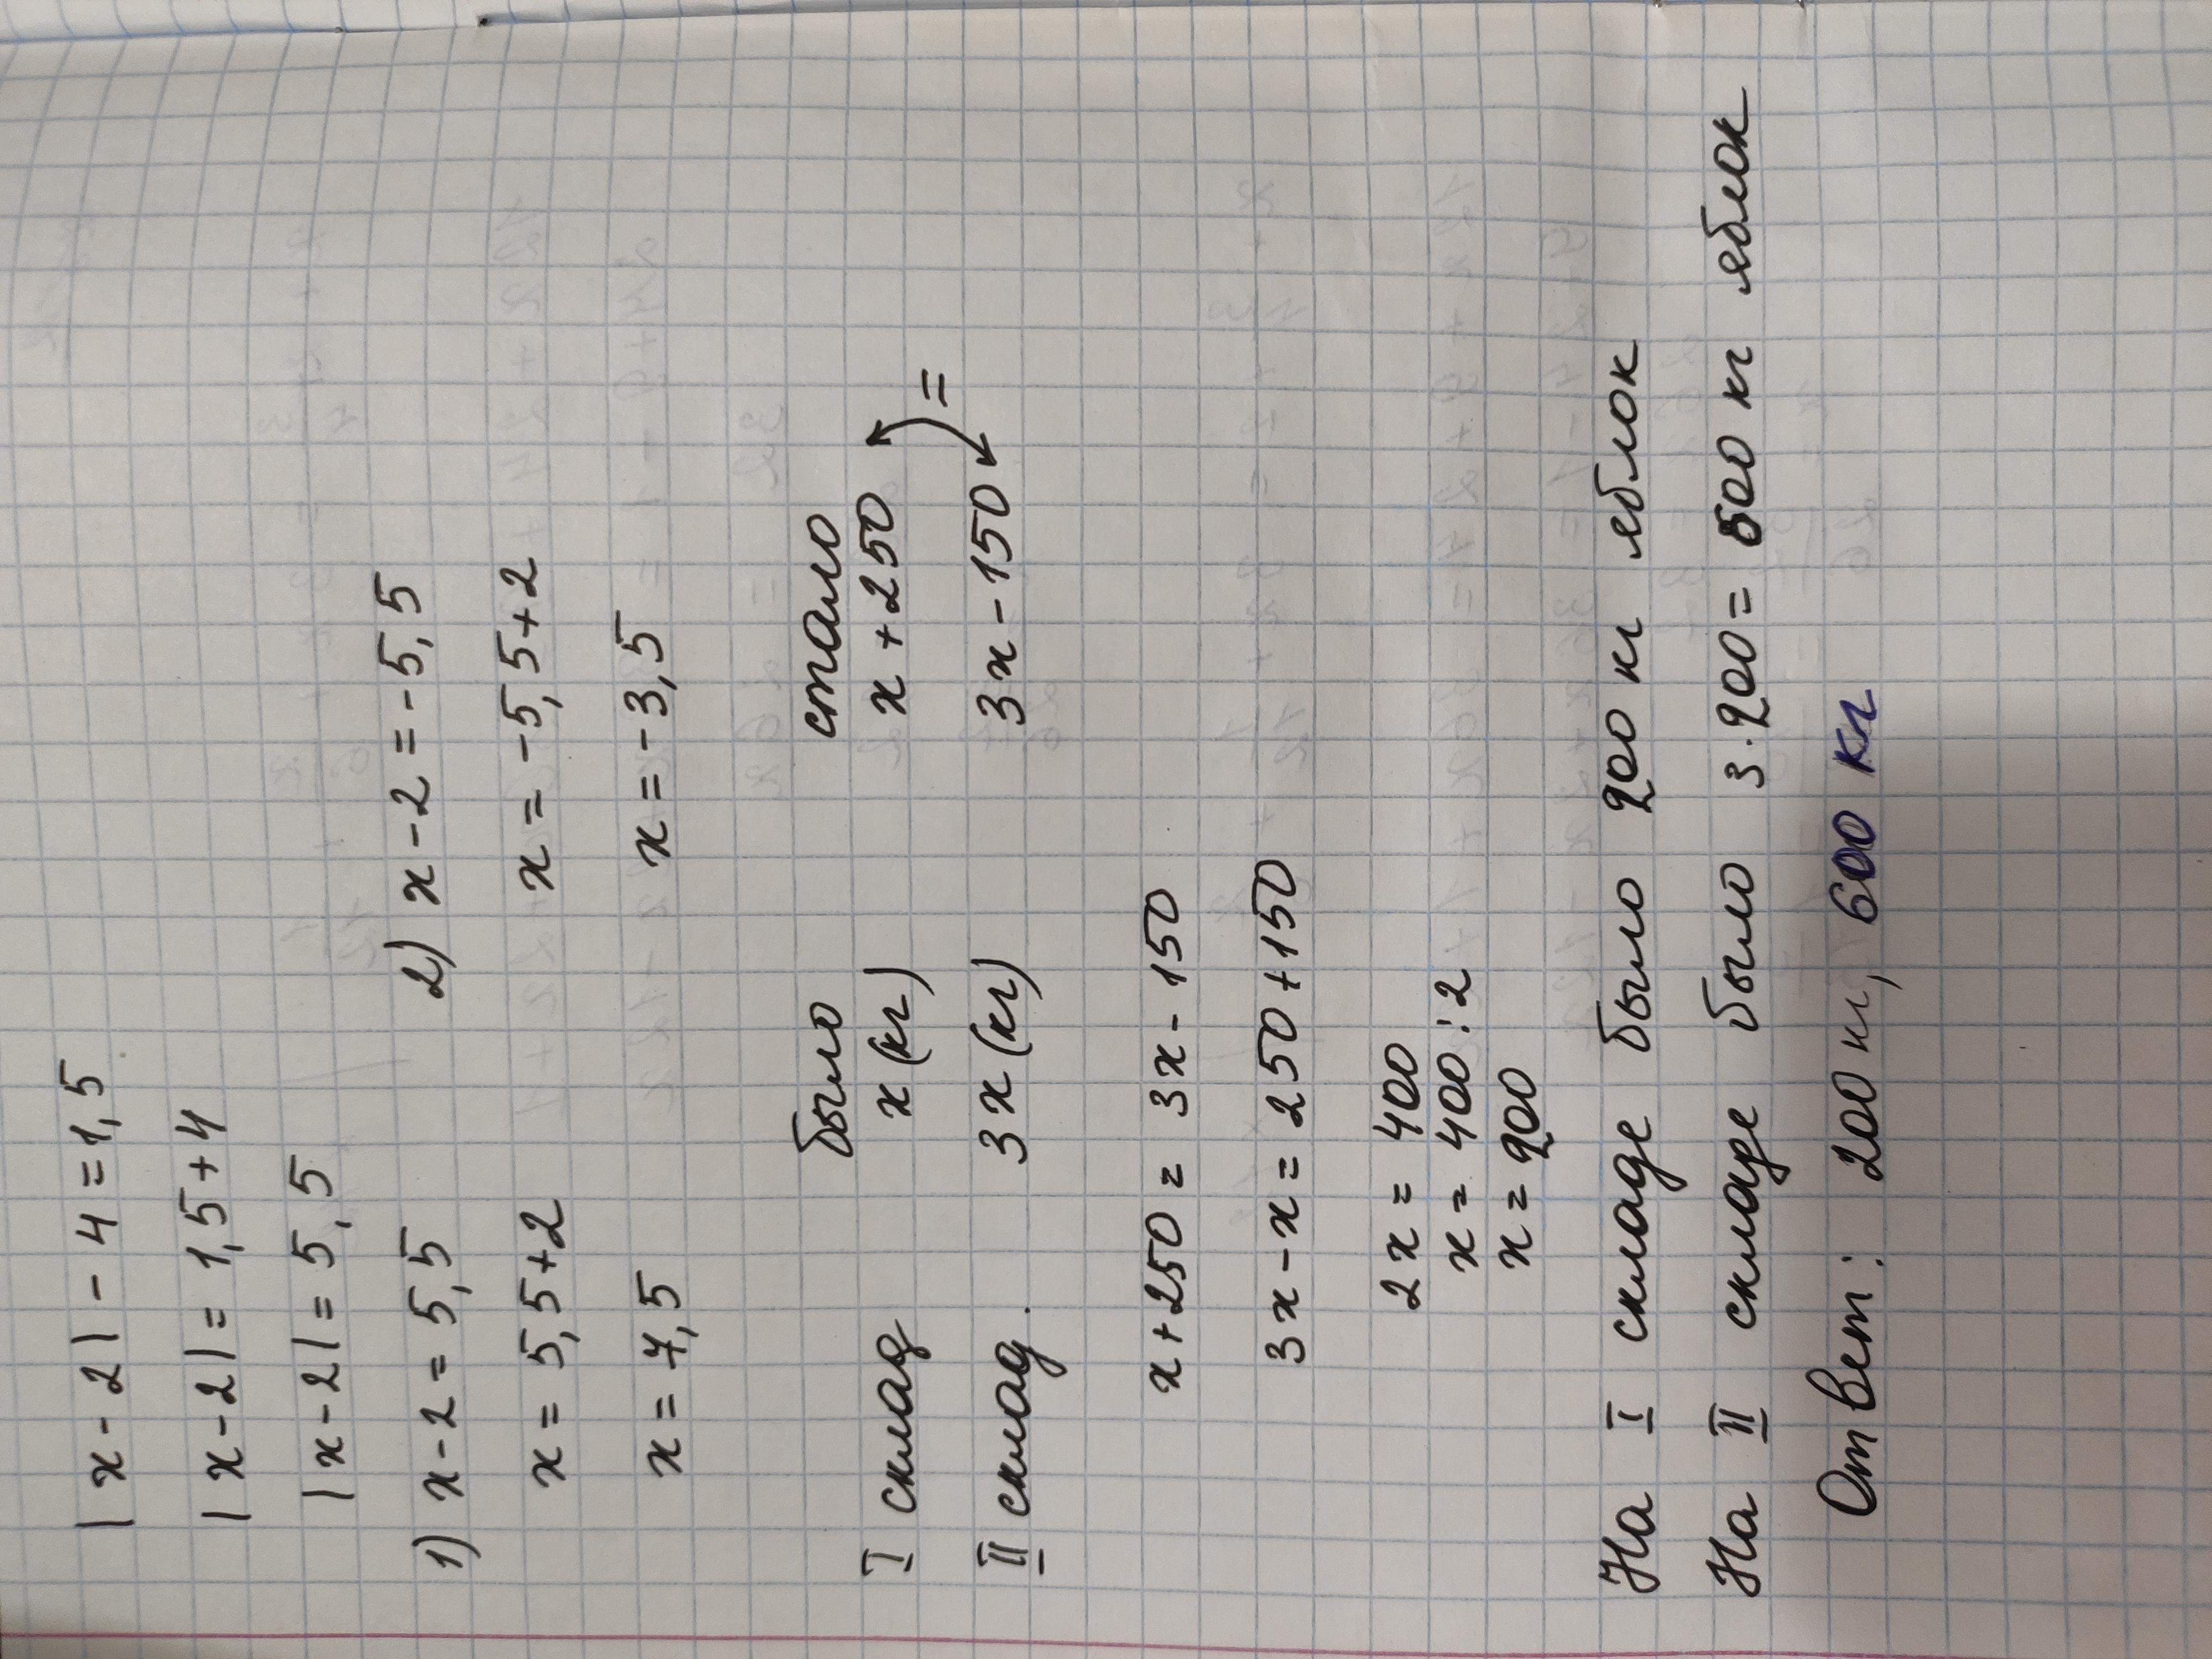 |x-2|-4=1,5
|x-2|=1,5+4
|x-2|=5,5
1) x-2=5,5 2) x-2=-5,5
x=5,5+2 x=-5,5+2
x=7,5 x=-3,5
было стало
I склад x(кг) x+250
=
II склад. 3x(кг) 3x-150
x+250=3x-150
3x-x=250+150
2x=400
x=400:2
x=200
На I складе было 200 кг яблок
На II складе было 3·200= 600 кг яблок
Ответ: 200 кг, 600 кг